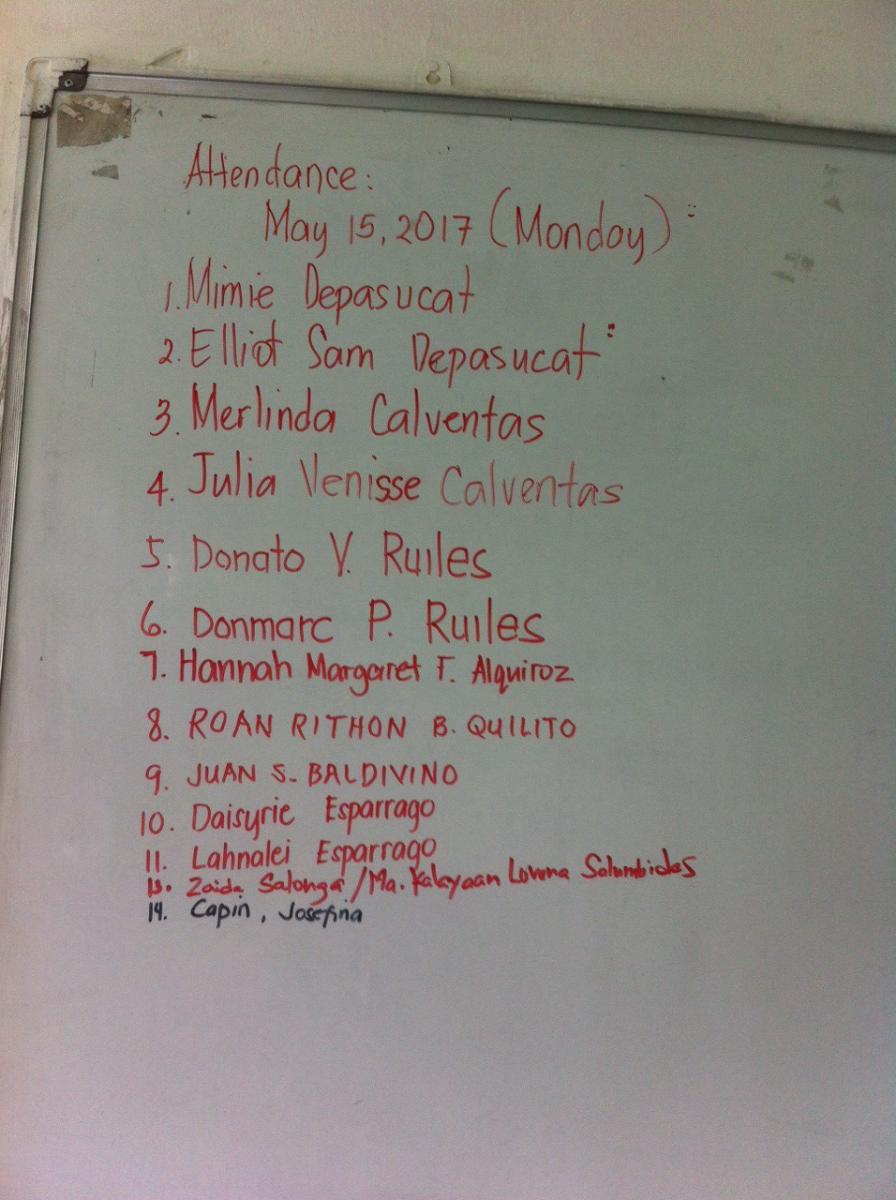 Attendance:
May 15, 2017 (Monday)
1. Mimie Depasucat
2. Elliot Sam Depasucat
3. Merlinda Calventas
4. Julia Venisse Calventas
5. Donato V. Ruiles
6. Donmarc P. Ruiles
7. Hannah Margaret F. Alquiroz
8. ROAN RITHON B. QUILITO
9. JUAN S. BALDIVINO
10. Daisyrie Esparrago
11. Lahnalei Esparrago
13. Zaida Salonga / Ma. Kalayaan Lorena Salumbides
14. Capin, Josefina